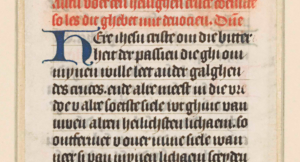 so les die ghebet mit deuocien. Dne
Here ihesu criste om die bitter
heit der passien die ghi om
mynen wille leet aen der galghen
des cruces. ende alre meest in die vr
doe v alre soetste siele wt ghinc van
uwen alren heilichsten lichaem. so
ontfermet v ouer mine siele wan
neer si van mynen lichaem